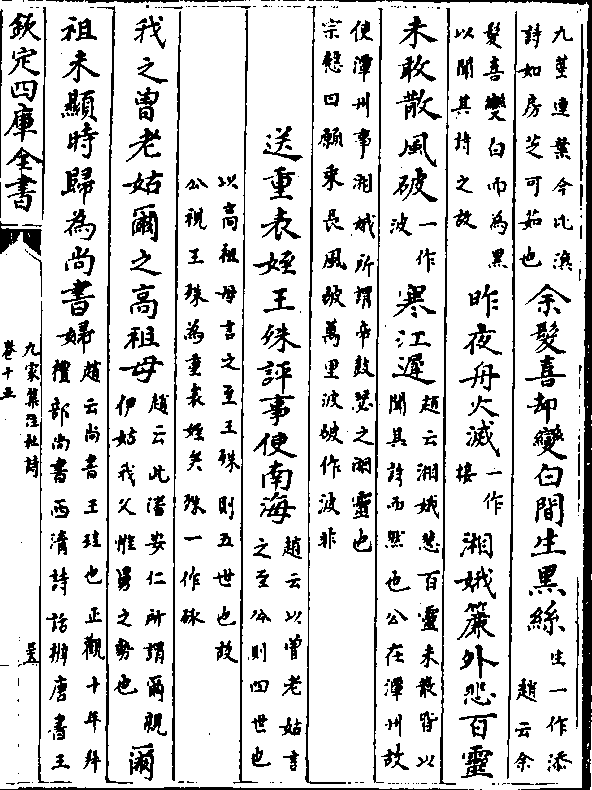 九莖連葉今比濱
詩如房芝可茹也
余髮喜却變白間生黑絲
生一作添
趙云余
髮喜變白而為黑
以聞其詩之故
昨夜舟火滅
一作
接
湘娥簾外悲百靈
未敢散風破
一作
波
寒江遲
趙云湘娥悲百靈未散皆以
聞其詩而然也公在潭州故
使潭州事湘娥所謂帝鼓瑟之湘靈也
宗慤曰願乗長風破萬里波破作波非
送重表姪王殊評事使南海
趙云以曾老姑言
之至公則四世也
以高祖母言之至王殊則五世也故
公視王殊為重表姪矣殊一作砅
我之曾老姑爾之高祖母
趙云此潘安仁所謂爾親
伊姑我父惟舅之勢也
爾
祖未顯時歸為尚書婦
趙云尚書王珪也正觀十年拜
禮部尚書西清詩話辨唐書王
欽定四庫全書
九家集注杜詩
卷十五